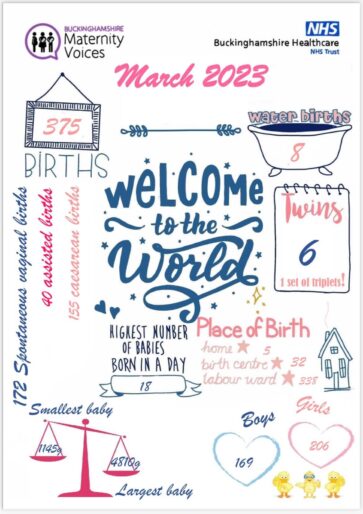 BUCKINGHAMSHIRE
Maternity
Voices
NHS
Buckinghamshire Healthcare
NHS Trust
March 2023
375
BIRTHS
water births
8
welcome
to the
World
Twins
6
1 set of triplets!
172 Spontaneous vaginal births
40 assisted births
155 caesarean births
HIGHEST NUMBER
OF BABIES
BORN IN A DAY
18
Place of Birth
home 5
birth centre 32
labour ward 338
Smallest baby
1145g
4810g
Largest baby
Boys
169
Girls
206